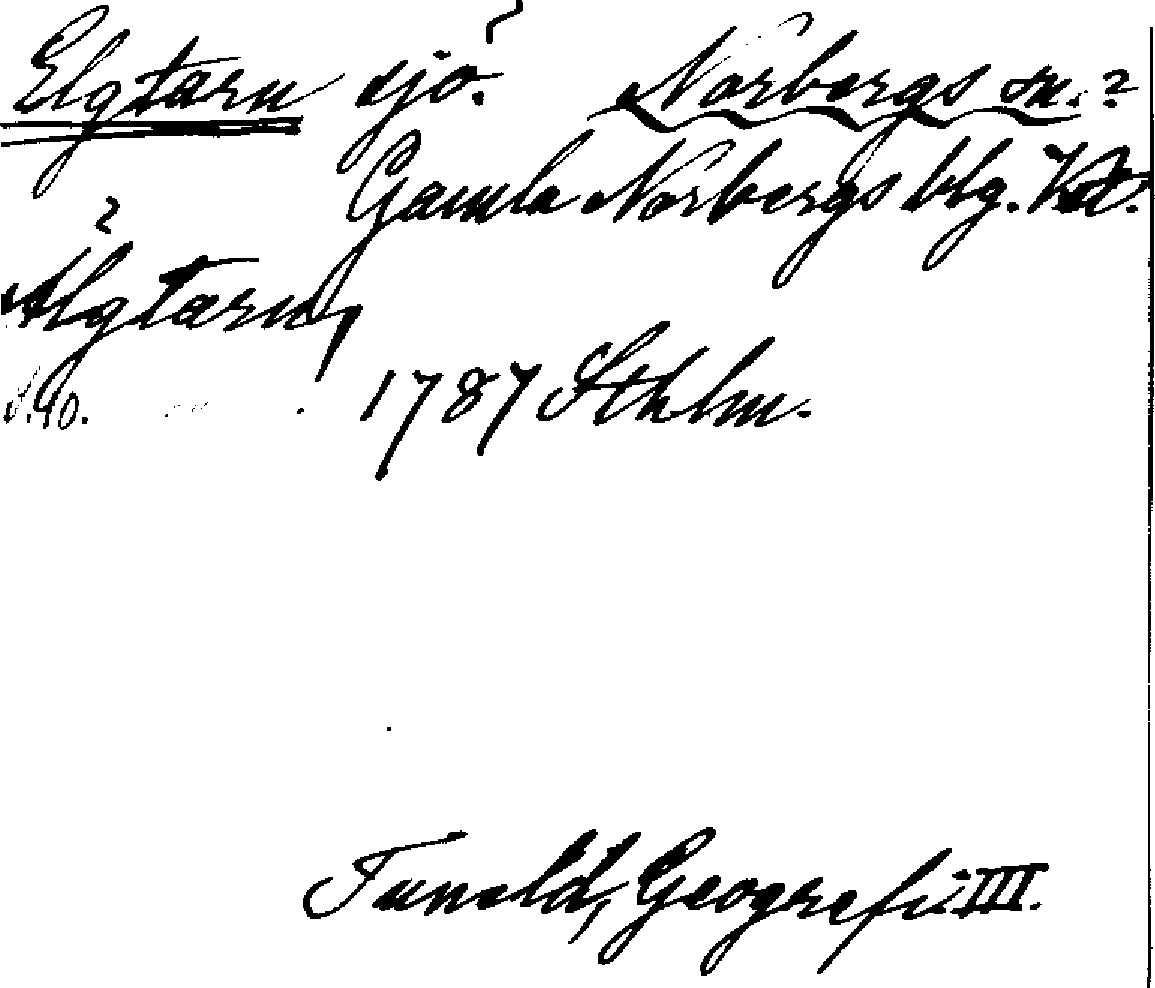 Elgtarn sjö. Norbergs sn.?
Gamla Norbergs blg. Vstm.
?
Älgtarn,
s. 90. 1787 Sthlm.
Tuneld, Geografi. III.